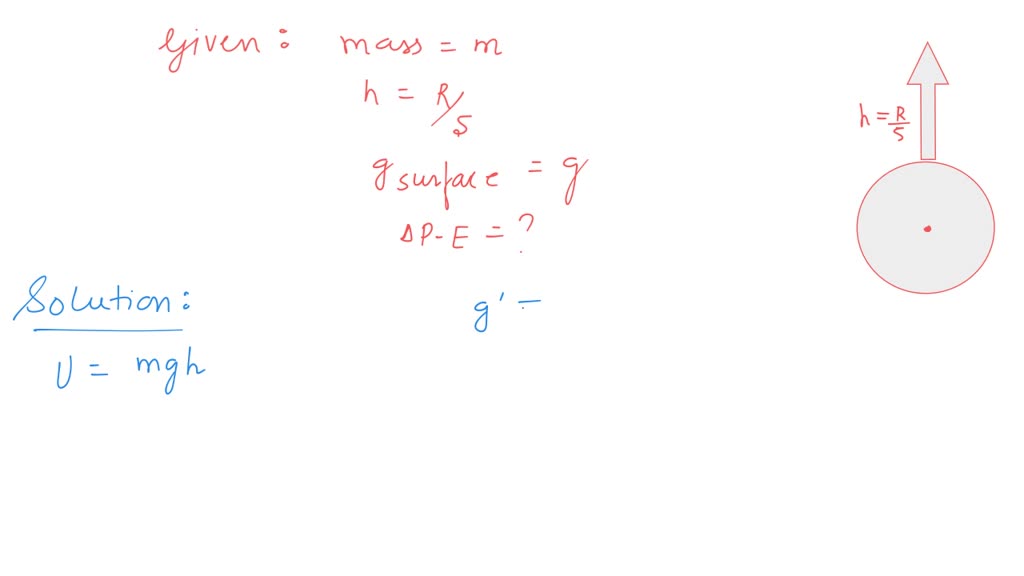 Given: mass = m
h = R/5
g surface = g
ΔP-E = ?
h = R/5
Solution:
g' =
U = mgh